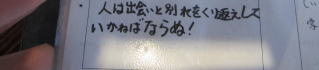 人は出会いと別れをくり返えして
いかねばならぬ!